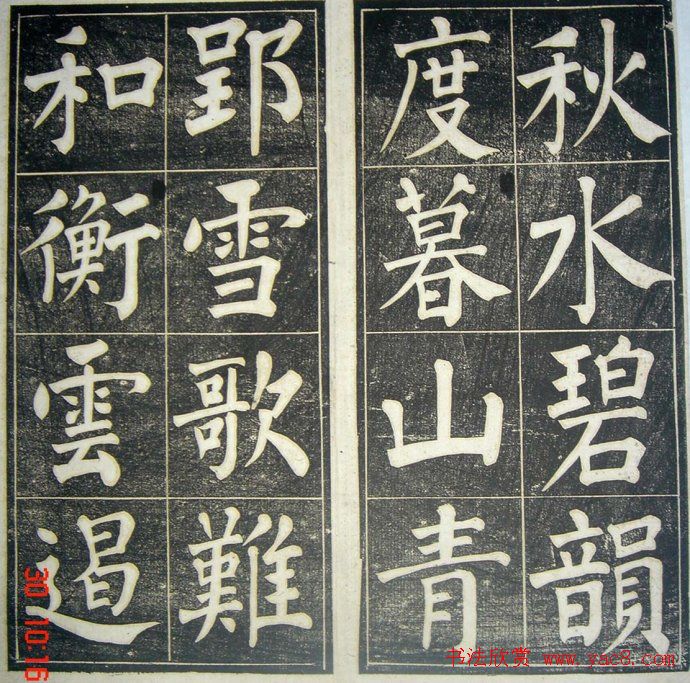 秋水碧韻
度暮山青
郢雪歌難
和衡雲遏
30 10:16
书法欣赏 www.yac8.com